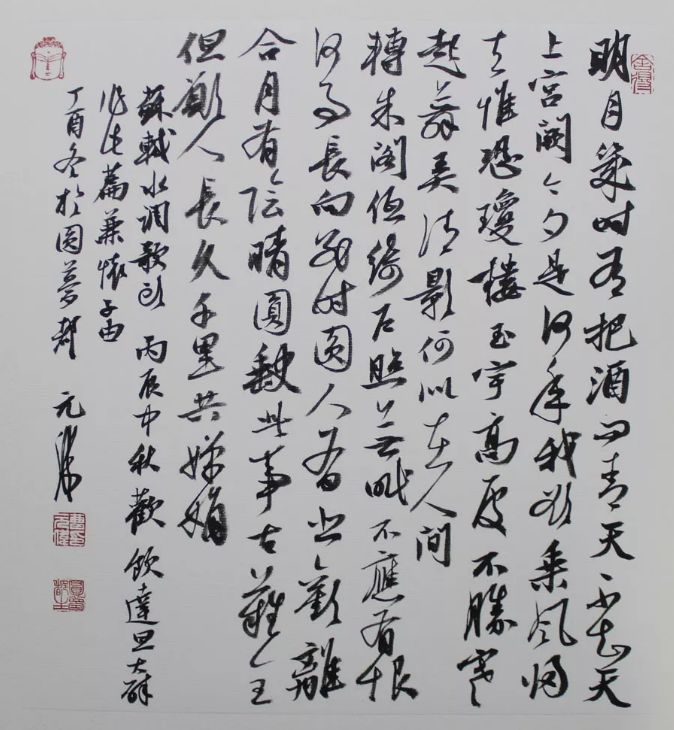 明月幾时有把酒问青天不知天
上宫阙今夕是何年我欲乘风归
去惟恐瓊楼玉宇高處不勝寒
起舞弄清影何似在人间
轉朱阁低绮户照无眠不應有恨
何事長向别时圆人有悲歡離
合月有阴晴圓缺此事古難全
但願人長久千里共婵娟
蘇軾水调歌头 丙辰中秋歡飲達旦大醉
作此篇兼懷子由
丁酉冬於圆夢 元